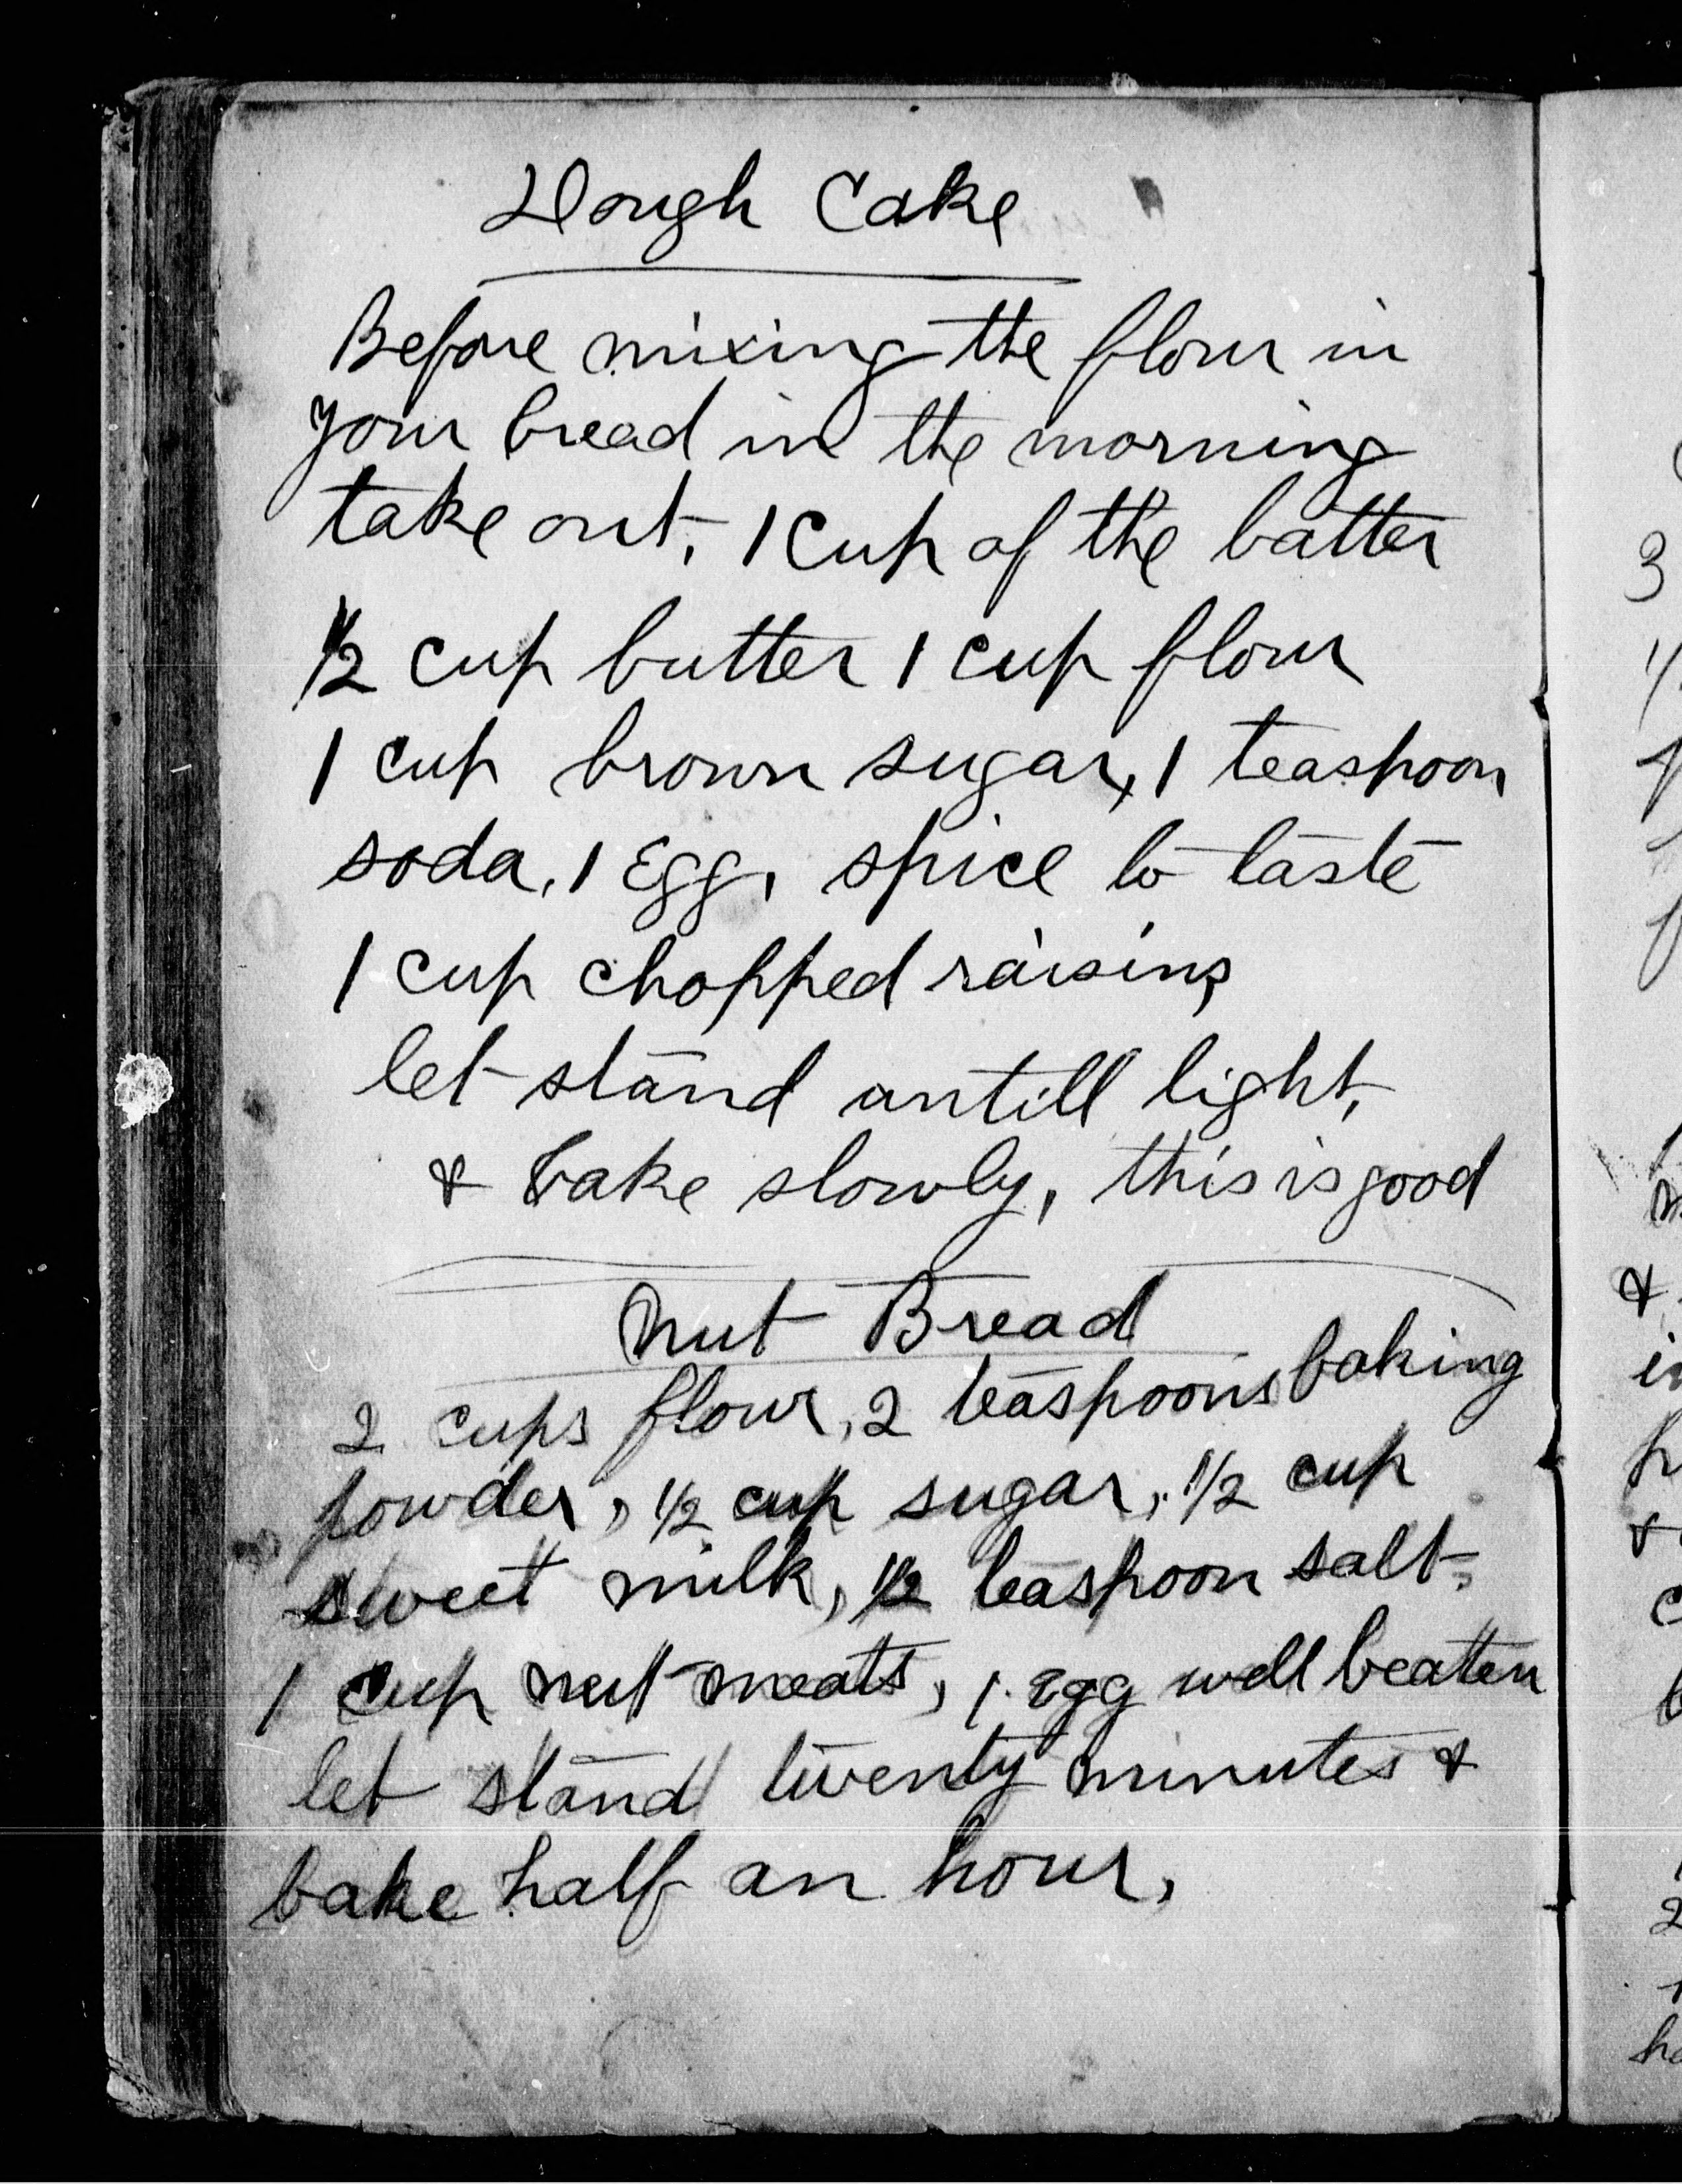 Dough Cake
Before mixing the flour in
your bread in the morning
take out, 1 cup of the batter
1/2 cup butter 1 cup flour
1 cup brown sugar, 1 teaspoon
soda, 1 Egg, spice to taste
1 cup chopped raisins
let stand untill light,
& bake slowly, this is good
Nut Bread
2 cups flour, 2 teaspoons baking
powder, 1/2 cup sugar, 1/2 cup
sweet milk, 1/2 teaspoon salt,
1 cup nut meats, 1 egg well beaten
let stand twenty minutes &
bake half an hour,
3
&
2